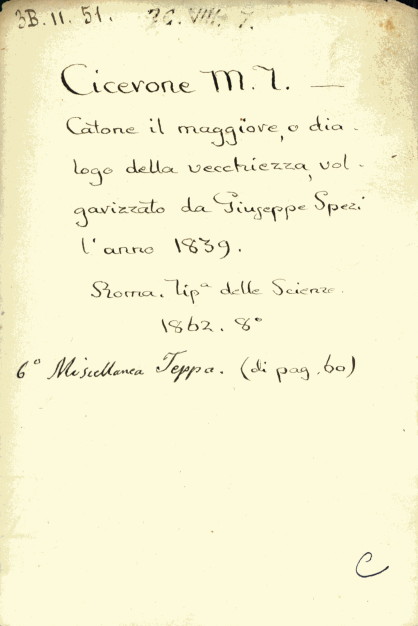 3B.11.51. 7C.VIII.7.
Cicerone M. T. —
Catone il maggiore, o dia-
logo della vecchiezza, vol-
gavizzato da Giuseppe Spezi
l'anno 1839.
Roma. Tip.ª delle Scienze.
1862. 8º
6º Miscellanea Teppa. (di pag. 60)
C